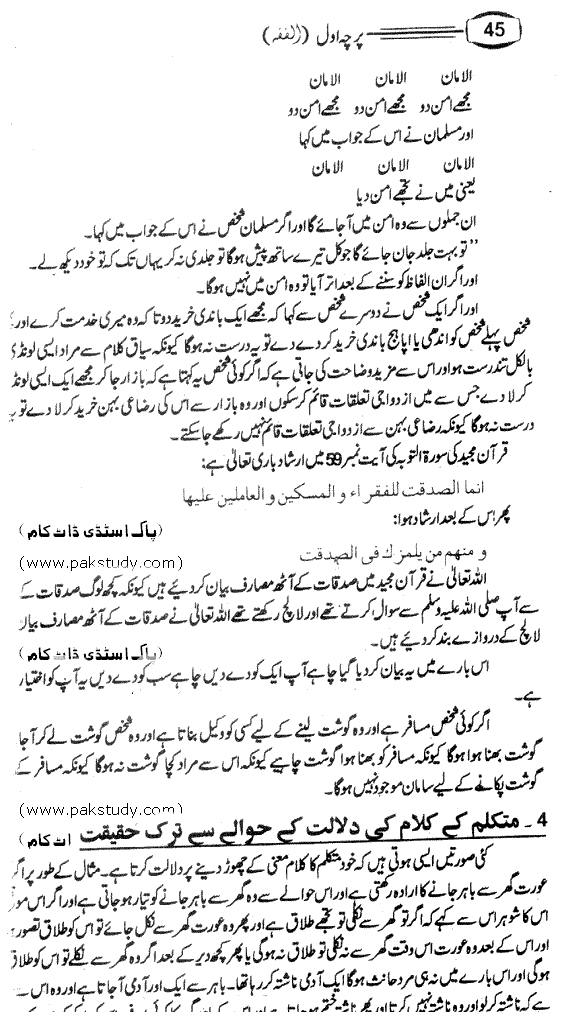 45
پرچہ اول (الفقہ)
الامان الامان الامان
مجھے امن دو مجھے امن دو مجھے امن دو
اور مسلمان نے اس کے جواب میں کہا
الامان الامان الامان
یعنی میں نے تجھے امن دیا
ان جملوں سے وہ امن میں آ جائے گا اور اگر مسلمان شخص نے اس کے جواب میں کہا۔
"تو بہت جلد جان جائے گا جو کل تیرے ساتھ پیش ہو گا تو جلدی نہ کر یہاں تک کہ تو خود دیکھ لے۔
اور اگر ان الفاظ کو سننے کے بعد اتر آیا تو وہ امن میں نہیں ہو گا۔
اور اگر ایک شخص نے دوسرے شخص سے کہا کہ مجھے ایک باندی خرید دو تا کہ وہ میری خدمت کرے اور
شخص پہلے شخص کو اندھی یا اپاہج باندی خرید کر دے دے تو یہ درست نہ ہو گا کیونکہ سیاق کلام سے مراد ایسی لونڈی
بالکل تندرست ہو اور اس سے مزید وضاحت کی جاتی ہے کہ اگر کوئی شخص یہ کہتا ہے کہ بازار جا کر مجھے ایک ایسی لونڈ
کر لا دے جس سے میں ازدواجی تعلقات قائم کر سکوں اور وہ بازار سے اس کی رضاعی بہن خرید کر لا دے تو یہ
درست نہ ہو گا کیونکہ رضاعی بہن سے ازدواجی تعلقات قائم نہیں رکھے جا سکتے۔
قرآن مجید کی سورۃ التوبہ کی آیت نمبر 59 میں ارشاد باری تعالیٰ ہے:
انما الصدقت للفقراء و المسکین و العاملین علیھا
پھر اس کے بعد ارشاد ہوا:
پاک اسٹڈی ڈاٹ کام)
(www.pakstudy.com)
و منھم من یلمزک فی الصدقت
اللہ تعالیٰ نے قرآن مجید میں صدقات کے آٹھ مصارف بیان کر دیئے ہیں کیونکہ کچھ لوگ صدقات کے
سے آپ صلی اللہ علیہ وسلم سے سوال کرتے تھے اور لالچ رکھتے تھے اللہ تعالیٰ نے صدقات کے آٹھ مصارف بیان
لالچ کے دروازے بند کر دیئے ہیں۔
پاک اسٹڈی ڈاٹ کام)
اس بارے میں یہ بیان کر دیا گیا چاہے آپ ایک کو دے دیں چاہے سب کو دے دیں یہ آپ کو اختیار
ہے۔
اگر کوئی شخص مسافر ہے اور وہ گوشت لینے کے لیے کسی کو وکیل بناتا ہے اور وہ شخص گوشت لے کر آ جا
گوشت بھنا ہوا ہو گا کیونکہ مسافر کو بھنا ہوا گوشت چاہیے کیونکہ اس سے مراد کچا گوشت نہ ہو گا کیونکہ مسافر کے
گوشت پکانے کے لیے سامان موجود نہیں ہو گا۔
(www.pakstudy.com)
4 - متکلم کے کلام کی دلالت کے حوالے سے ترک حقیقت
اٹ کام)
کئی صورتیں ایسی ہوتی ہیں کہ خود متکلم کا کلام معنی کے چھوڑ دینے پر دلالت کرتا ہے۔ مثال کے طور پر اگر
عورت گھر سے باہر جانے کا ارادہ رکھتی ہے اور اس حوالے سے وہ گھر سے باہر جانے کو تیار ہو جاتی ہے اور اگر اس موق
اس کا شوہر اس سے کہے کہ اگر تو گھر سے نکلی تو تجھے طلاق ہے اور پھر وہ عورت گھر سے نکل جائے تو اس کو طلاق تصور
اور اس کے بعد وہ عورت اس وقت گھر سے نہ نکلی تو طلاق نہ ہو گی یا پھر کچھ دیر کے بعد اگر وہ گھر سے نکلے تو اس کو طلاق
ہو گی اور اس بارے میں نہ ہی مرد حانث ہو گا ایک آدمی ناشتہ کر رہا تھا۔ باہر سے ایک اور آدمی آ جاتا ہے اور وہ اس
ہے کہ ناشتہ کر لو اور وہ ناشتہ نہیں کرتا اور پھر ناشتہ ختم ہو جاتا ہے